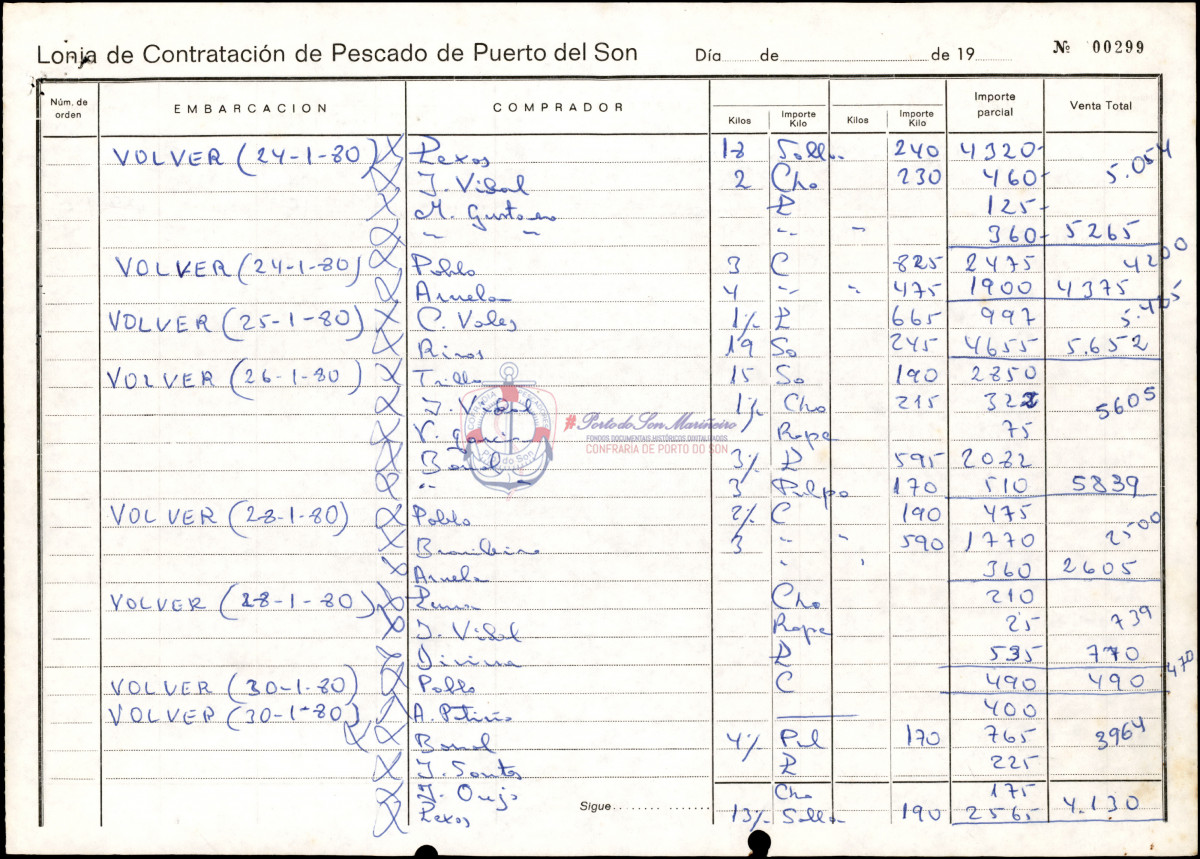 Lonja de Contratación de Pescado de Puerto del Son Día de de 19 Nº 00299
Núm. de orden EMBARCACION COMPRADOR Kilos Importe Kilo Kilos Importe Kilo Importe parcial Venta Total
VOLVER (24-1-80) X Rexos 18 Solla 240 4320-
X J. Vidal 2 Cho 230 460- 5.054
X M. Gustavo R 125-
X " " " " 360- 5265
VOLVER (24-1-80) X Pablo 3 C 825 2475 4200
X Aruela 4 " " 475 1900 4375
VOLVER (25-1-80) X C. Vales 1½ R 665 997
X Rivas 19 So 245 4655 5.652
VOLVER (26-1-80) X Trillo 15 So 190 2850
X J. Vidal 1½ Cho 215 322 5605
X V. Garcia Rapa 75
X Bonal 3½ R 595 2082
X " 3 Pulpo 170 510 5839
VOLVER (28-1-80) X Pablo 2½ C 190 475
X Brasileiro 3 " " 590 1770 2500
X Aruela " " 360 2605
VOLVER (28-1-80) X Cho 210
X J. Vidal Rapa 25 739
X Divina R 535 770
VOLVER (30-1-80) X Pablo C 490 490 470
VOLVER (30-1-80) X A. Patiño 400
X Bonal 4½ Pul 170 765 3964
X J. Santos R 225
X J. Cho 175
X Rexos 13½ Solla 190 2565 4.130
Sigue
#Porto do Son Mariñeiro
FONDOS DOCUMENTAIS HISTÓRICOS DIXITALIZADOS
CONFRARÍA DE PORTO DO SON